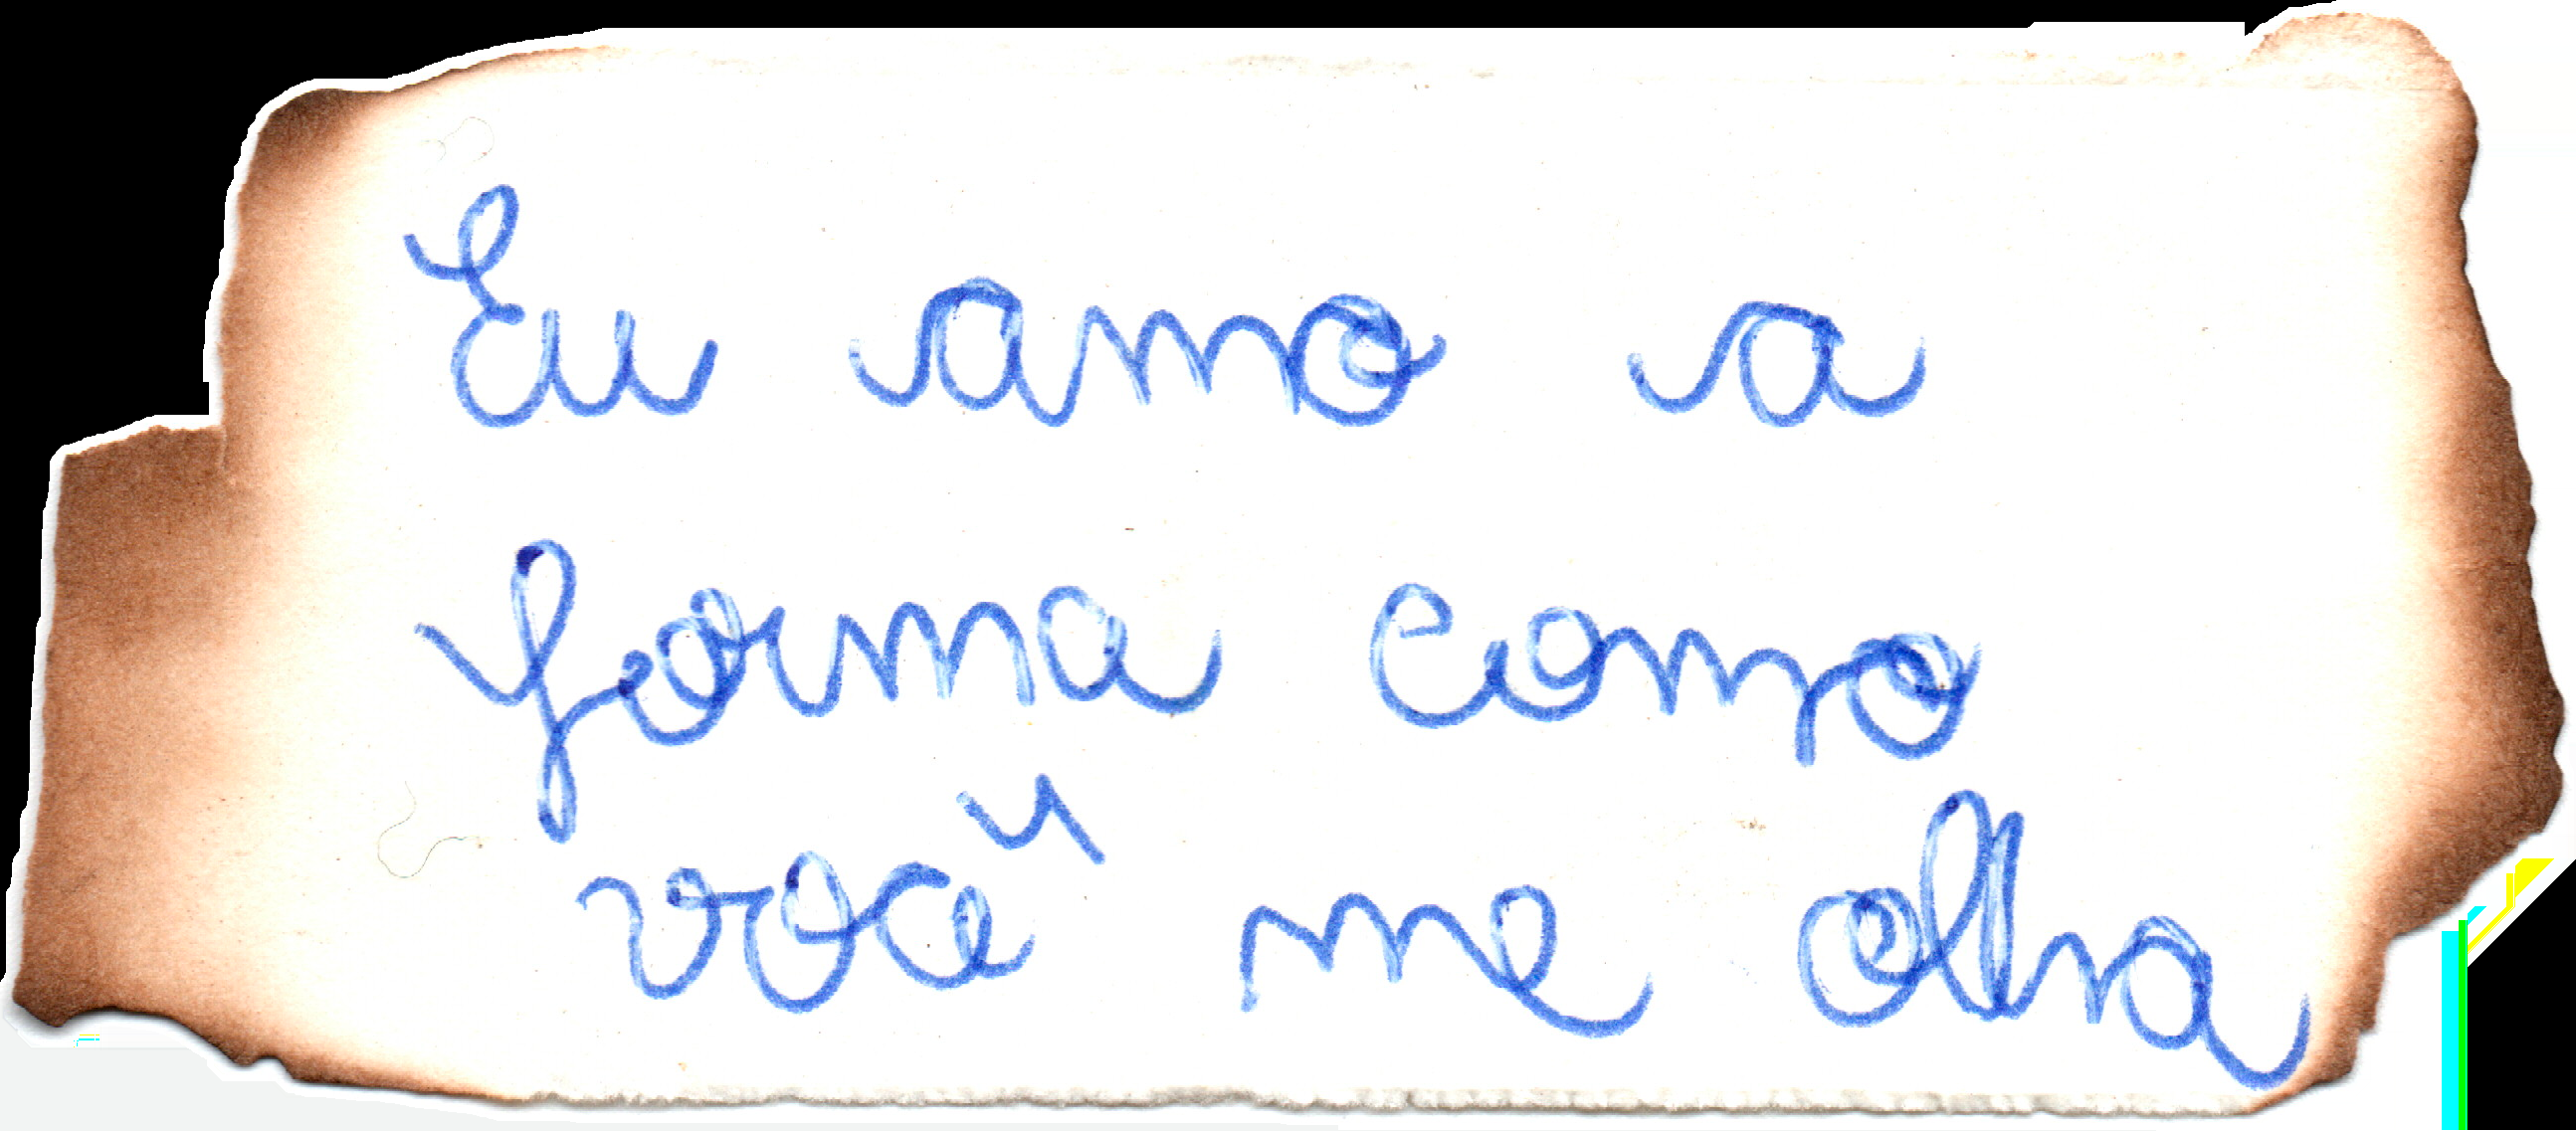 Eu amo a
forma como
você me olha